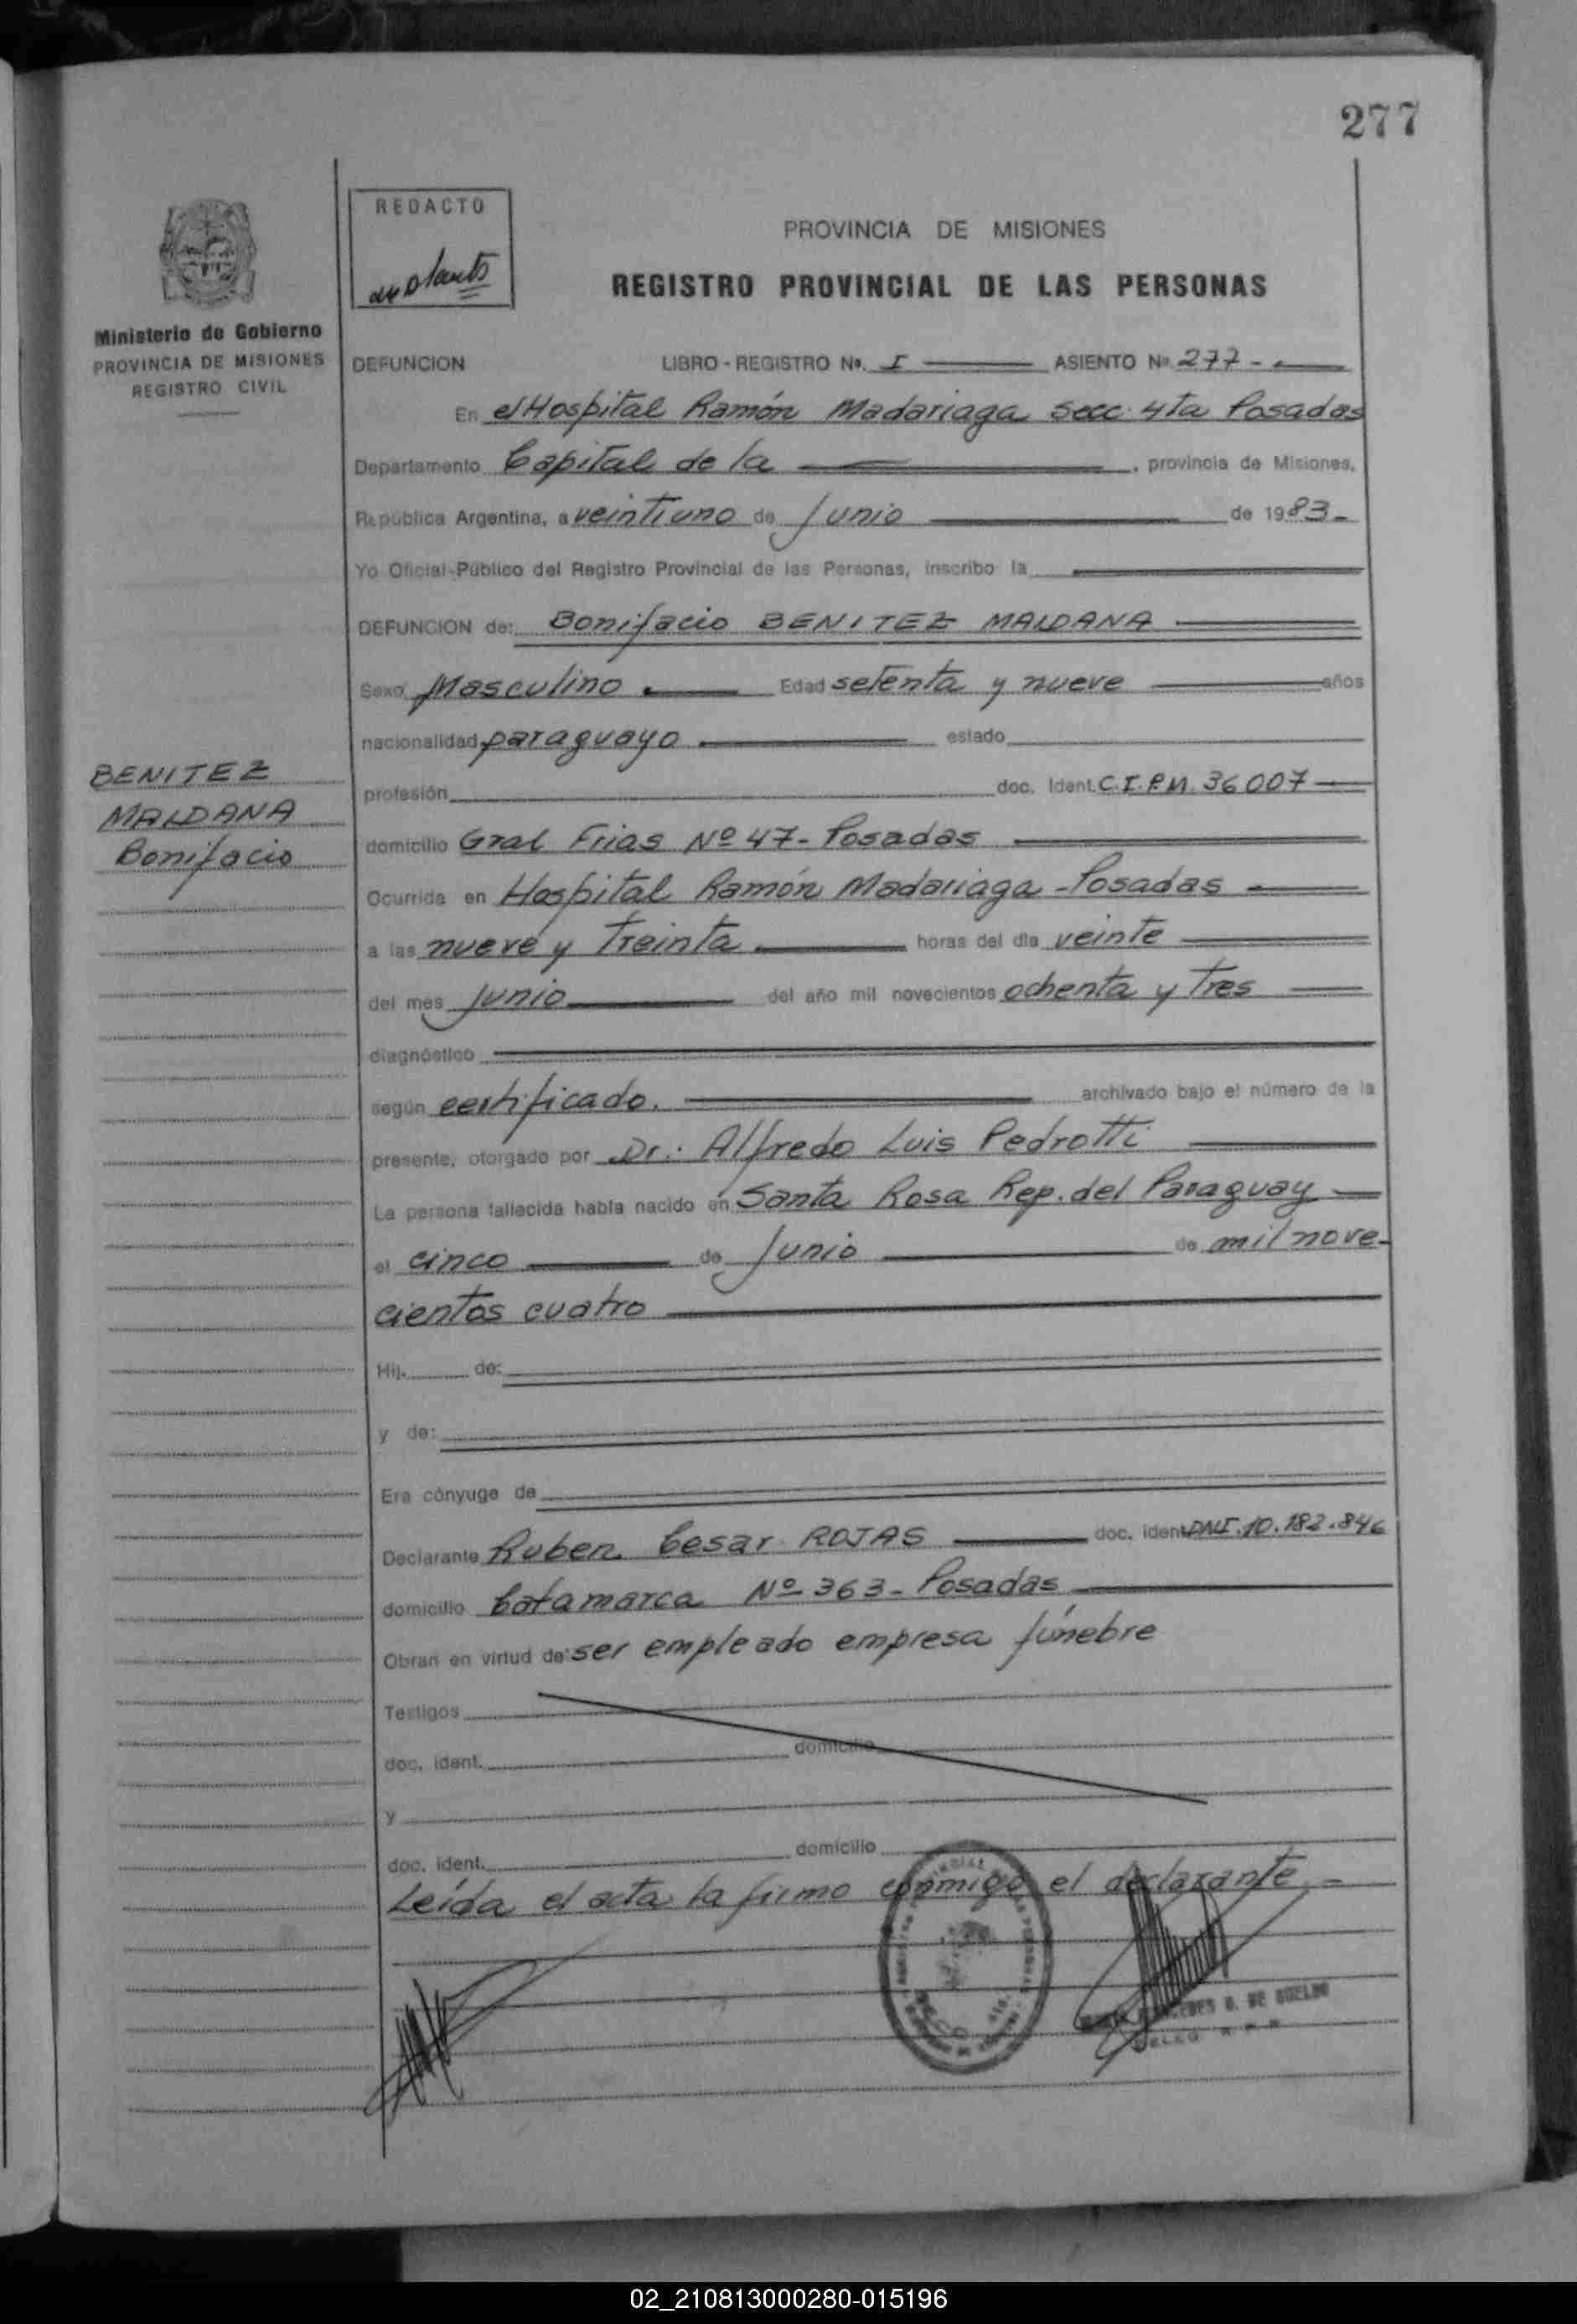 277
REDACTO
PROVINCIA DE MISIONES
REGISTRO PROVINCIAL DE LAS PERSONAS
Ministerio de Gobierno
PROVINCIA DE MISIONES
REGISTRO CIVIL
DEFUNCION LIBRO - REGISTRO No. I ASIENTO No. 277 -
En el Hospital Ramón Madariaga secc. 4ta Posadas
Departamento Capital de la , provincia de Misiones,
República Argentina, a veintiuno de Junio de 1983 -
Yo Oficial-Público del Registro Provincial de las Personas, inscribo la
DEFUNCION de: Bonifacio BENITEZ MALDANA
Sexo Masculino . Edad setenta y nueve años
nacionalidad paraguayo estado
BENITEZ
MALDANA
Bonifacio
profesión doc. Ident. C.I.P.M. 36007
domicilio Gral Frias Nº 47 - Posadas
Ocurrida en Hospital Ramón Madariaga - Posadas -
a las nueve y Treinta horas del día veinte
del mes Junio del año mil novecientos ochenta y Tres
diagnóstico
según certificado. archivado bajo el número de la
presente, otorgado por Dr.: Alfredo Luis Pedrotti
La persona fallecida había nacido en Santa Rosa Rep. del Paraguay
el cinco de Junio de mil nove-
cientos cuatro
Hij. de:
y de:
Era cónyuge de
Declarante Ruben Cesar ROJAS doc. ident. DNI. 10.182.846
domicilio Catamarca Nº 363 - Posadas
Obran en virtud de: ser empleado empresa fúnebre
Testigos
doc. ident. domicilio
y
doc. ident. domicilio
Leída el acta la firmo conmigo el declarante -
DE
02_210813000280-015196